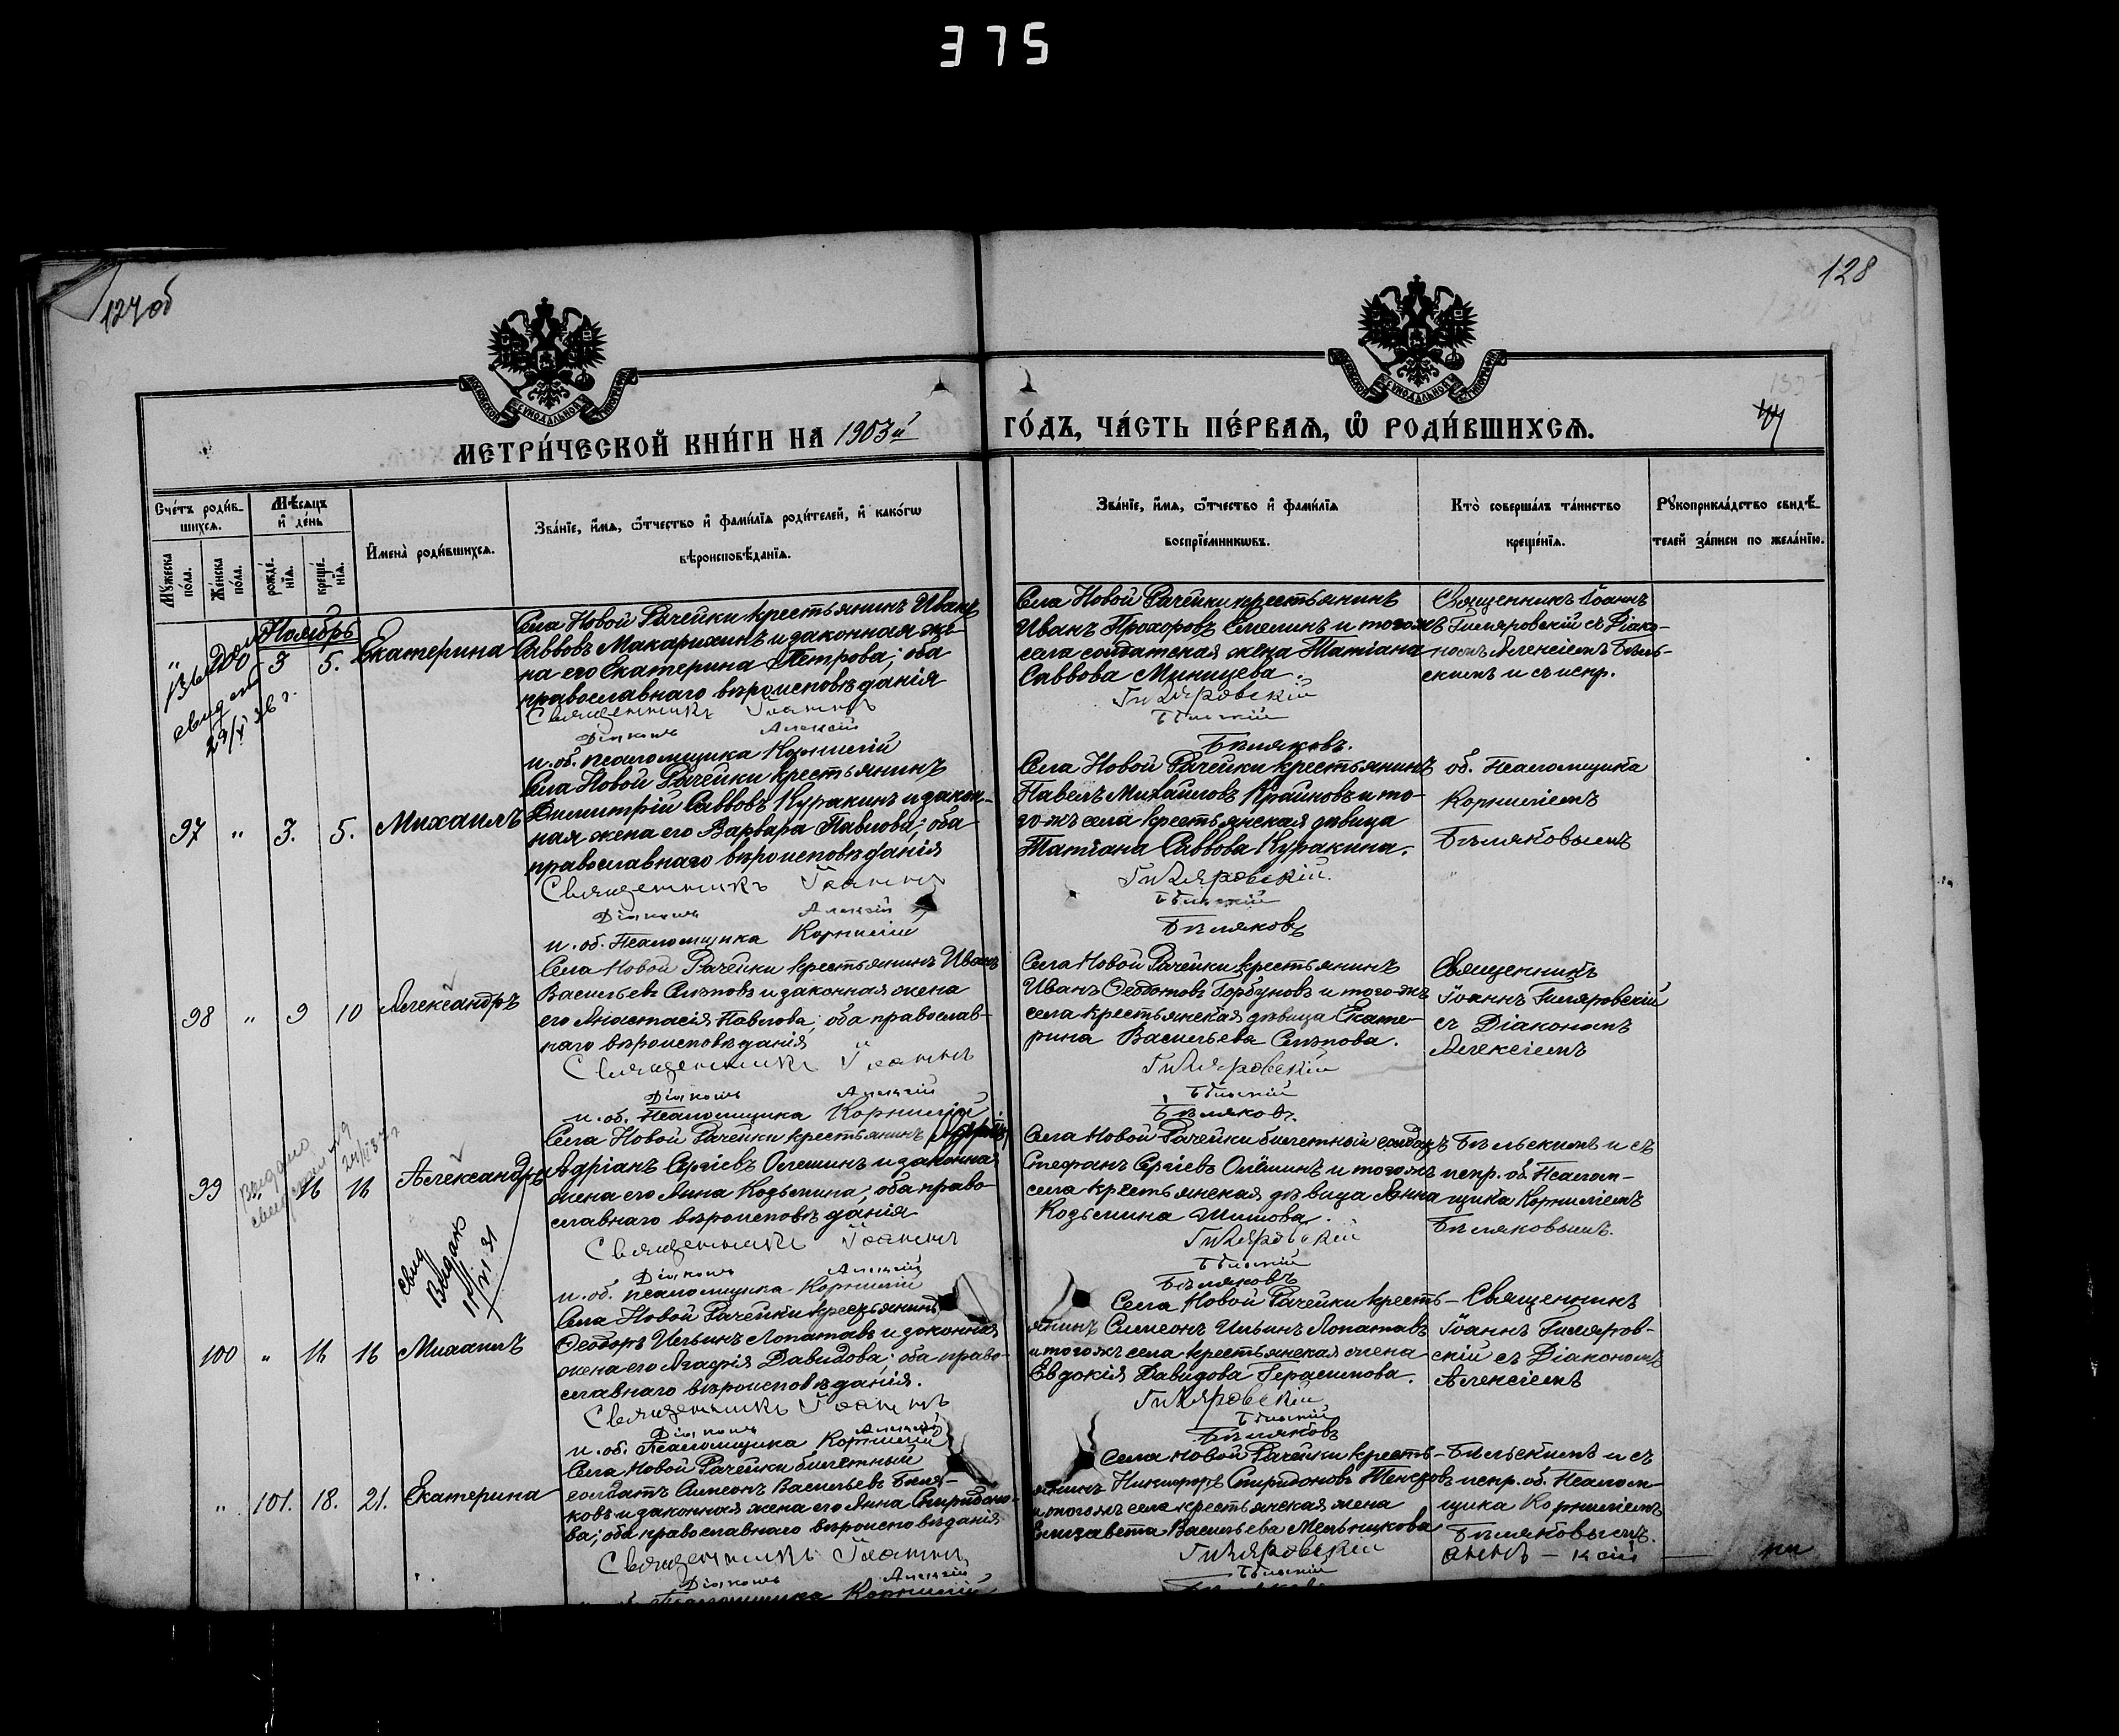 375
127 об
128
МЕТРИ́ЧЕСКОЙ КНИ́ГИ НА 1903й
ГО́ДЪ, ЧА́СТЬ ПЕ́РВАѦ, Ѽ РОДИ́ВШИХСѦ.
Сче́тъ роди́в-
шихсѧ.
Мѣ́сѧцъ
и҆ де́нь
Мꙋ́жеска
по́ла.
Же́нска
по́ла.
рожде́-
нїѧ.
креще́-
нїѧ.
И҆мена̀ роди́вшихсѧ.
Зва́нїе, и҆́мѧ, ѻ҆́тчество и҆ фами́лїѧ роди́телей, и҆ како́гѡ
вѣроисповѣ́данїѧ.
Зва́нїе, и҆́мѧ, ѻ҆́тчество и҆ фами́лїѧ
воспрїе́мникѡвъ.
Кто̀ соверша́лъ та́инство
креще́нїѧ.
Рꙋкоприкла́дство свидѣ́-
телей за́писи по жела́нїю.
Ноябрь
" 100 3 5. Екатерина
Села Новой Рачейки крестьянинъ Иванъ
Саввовъ Макарихинъ и законная же-
на его Екатерина Петрова; оба
православнаго вѣроисповѣданія
Священникъ Іоаннъ
Діаконъ Алексій
и. об. псаломщика Корнилій
Села Новой Рачейки крестьянинъ
Иванъ Прохоровъ Смолинъ и тогожъ
села солдатская жена Татіана
Саввова Миницева.
Гиляровскій
Бѣльскій
Бѣляковъ.
Священникъ Іоаннъ
Гиляровскій съ Діако-
номъ Алексіемъ Бѣль-
скимъ и съ испр.
97 " 3. 5. Михаилъ
Села Новой Рачейки крестьянинъ
Димитрій Саввовъ Куракинъ и закон-
ная жена его Варвара Павлова; оба
православнаго вѣроисповѣданія
Священникъ Іоаннъ
Діаконъ Алексій
и. об. Псаломщика Корнилій
Села Новой Рачейки крестьянинъ
Павелъ Михайловъ Крайновъ и то-
го-жъ села крестьянская дѣвица
Татіана Саввова Куракина.
Гиляровскій.
Бѣльскій
Бѣляковъ
об. Псаломщика
Корниліемъ
Бѣляковымъ
98 " 9 10 Александръ
Села Новой Рачейки крестьянинъ Иванъ
Васильевъ Слѣповъ и законная жена
его Анастасія Павлова; оба православ-
наго вѣроисповѣданія
Священникъ Іоаннъ
Діаконъ Алексій
и. об. Псаломщика Корнилій
Села Новой Рачейки крестьянинъ
Иванъ Ѳедотовъ Горбуновъ и того-жъ
села крестьянская дѣвица Екате-
рина Васильева Слѣпова.
Гиляровскій
Бѣльскій
Бѣляковъ.
Священникъ
Іоаннъ Гиляровскій
съ Діакономъ
Алексіемъ
99 " 16 16 Александръ
Села Новой Рачейки крестьянинъ
Адріанъ Сергіевъ Олешинъ и законная
жена его Анна Козьмина; оба право-
славнаго вѣроисповѣданія
Священникъ Іоаннъ
Діаконъ Алексій
и. об. псаломщика Корнилій
Села Новой Рачейки билетный солдатъ
Стефанъ Сергіевъ Олёшинъ и тогожъ
села крестьянская дѣвица Анна
Козьмина Шитова.
Гиляровскій
Бѣльскій
Бѣляковъ
Бѣльскимъ и съ
испр. об. Псалом-
щика Корниліемъ
Бѣляковымъ.
свид
Выдано
100 " 16 16 Михаилъ
Села Новой Рачейки крестьянинъ
Ѳеодоръ Ильинъ Лопатавъ и законная
жена его Агафія Давидова; оба право-
славнаго вѣроисповѣданія.
Священникъ Іоаннъ
Діаконъ Алексій
и. об. Псаломщика Корнилій
Села Новой Рачейки кресть-
янинъ Симеонъ Ильинъ Лопатавъ
и тогожъ села крестьянская жена
Евдокія Давидова Герасимова.
Гиляровскій
Бѣльскій
Бѣляковъ
Священникъ
Іоаннъ Гиляров-
скій съ Діакономъ
Алексіемъ
" 101. 18. 21. Екатерина
Села Новой Рачейки билетный
солдатъ Симеонъ Васильевъ Беля-
ковъ и законная жена его Анна Спиридоно-
ва; оба православнаго вѣроисповѣданія
Священникъ Іоаннъ
Діаконъ Алексій
Псаломщика Корнилій
Села Новой Рачейки кресть-
янинъ Никифоръ Спиридоновъ
и тогожъ села крестьянская жена
Елизавета Васильева Мельникова
Гиляровскій
Бѣльскій
Бѣльскимъ и съ
испр. об. Псалом-
щика Корниліемъ
Бѣляковымъ.